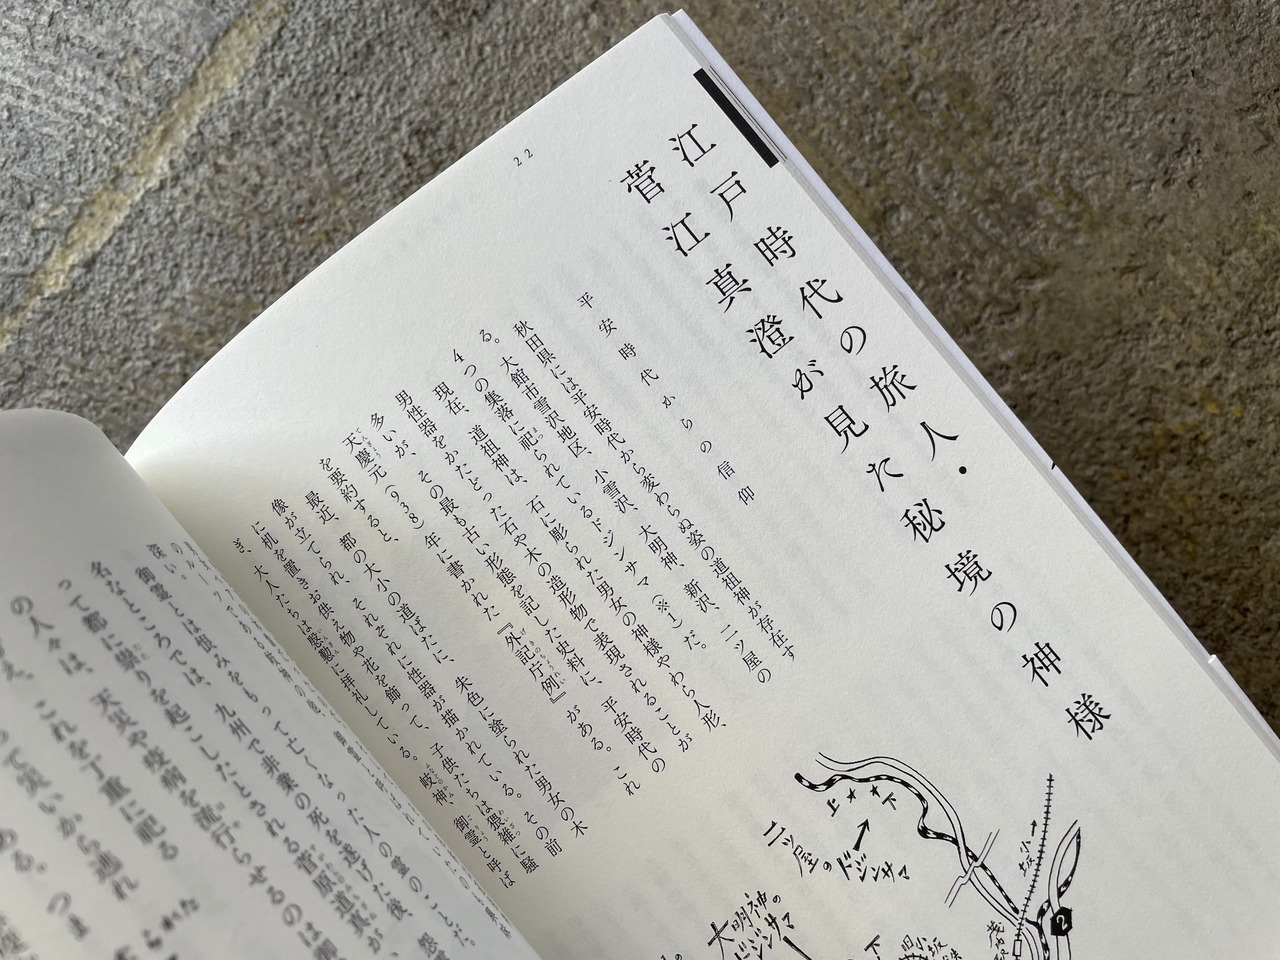 22
江戸時代の旅人・
菅江真澄が見た秘境の神様
平安時代からの信仰
秋田県には平安時代から変わらぬ姿の道祖神が存在す
る。大館市雪沢地区、小雪沢、大明神、新沢、二ツ屋の
4つの集落に祀られているドジンサマ(※1)だ。
現在、道祖神は、石に彫られた男女の神様やわら人形、
男性器をかたどった石や木の造形物で表現されることが
多いが、その最も古い形態を記した史料に、平安時代の
天慶元(938)年に書かれた『外記庁例』がある。これ
を要約すると、
最近、都の大小の道ばたに、朱色に塗られた男女の木
像が立てられ、それぞれに性器が描かれている。その前
に机を置きお供え物や花を飾って、子供たちは猥雑に騒
ぎ、大人たちは慇懃に拝礼している。岐神、御霊と呼ば
上
下
二ツ屋の
ドジンサマ
大明神の
ドジンサマ
小坂
2
下
御霊とは恨みをもって亡くなった人の霊のことだ。
名なところでは、九州で非業の死を遂げた後、怨霊
って都に祟りを起こしたとされる菅原道真が
の人々は、天災や疫病を流行らせるのは御
え、これを丁重に祀る
って災いから逃れ
ある。つま